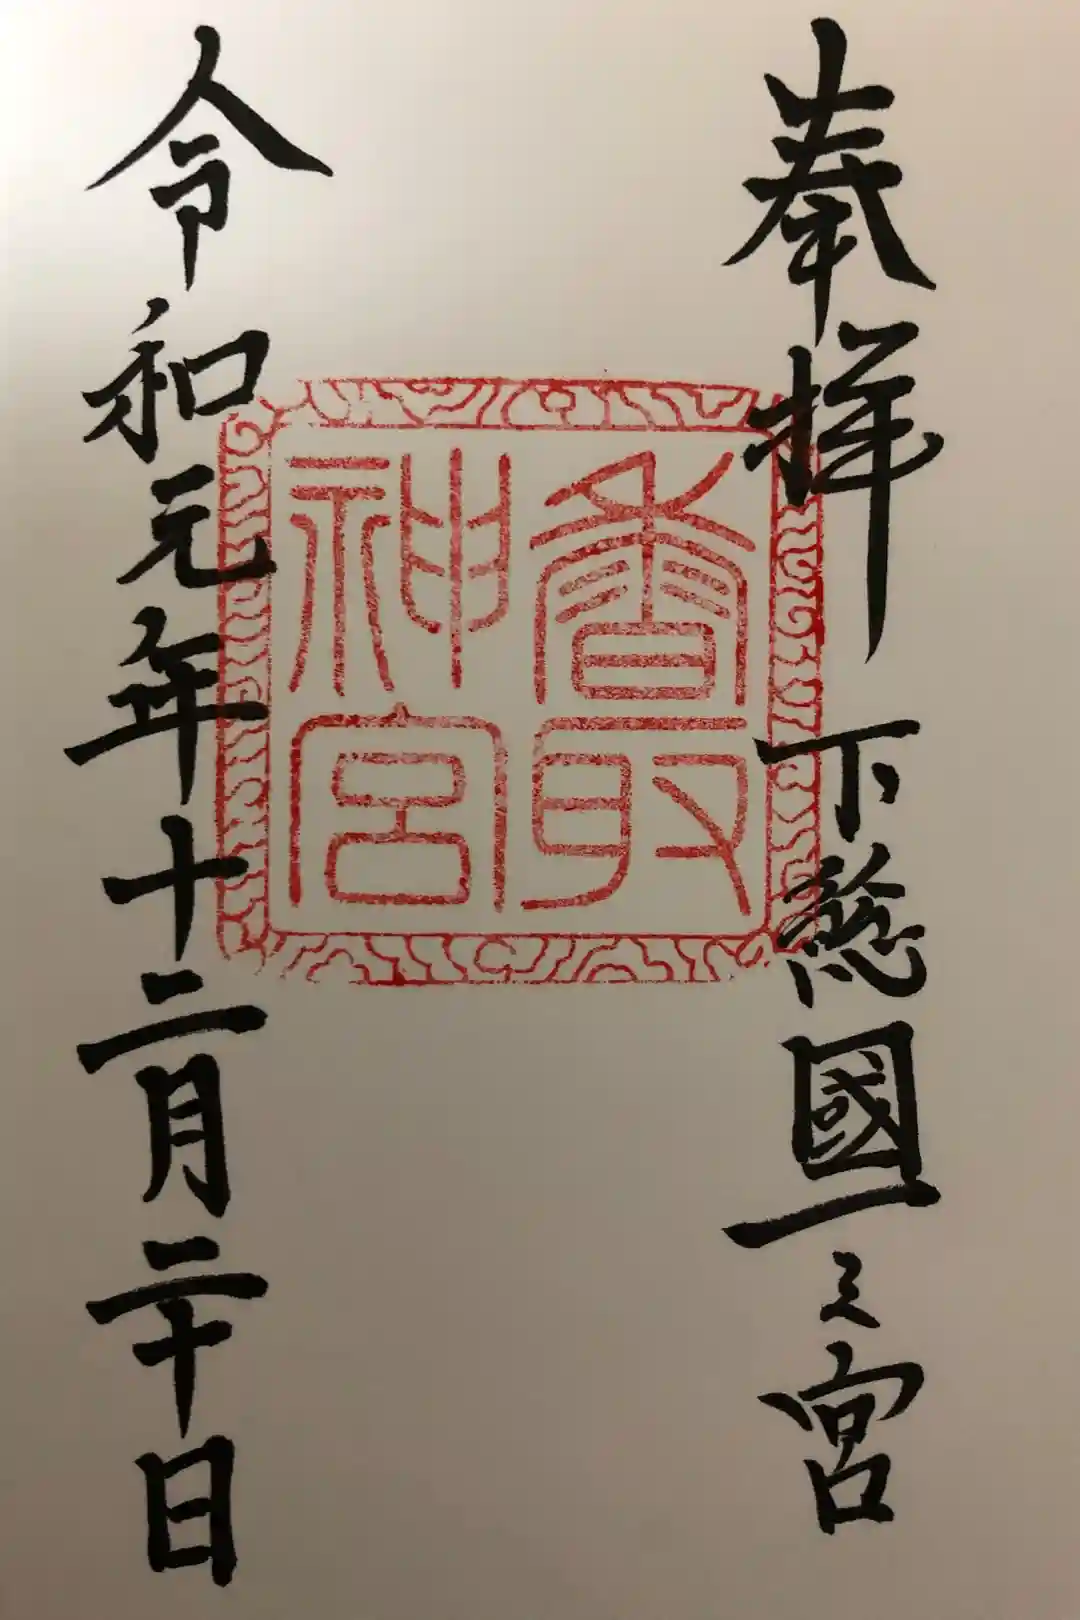 奉拝 下総國一之宮
香取
神宮
令和元年十二月二十日